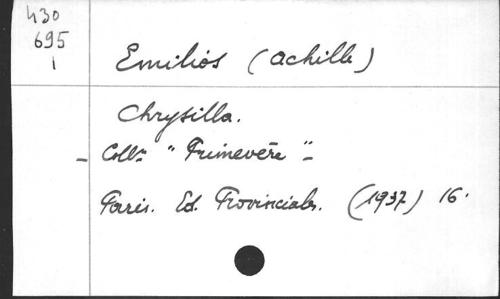 430
695
1
Emilios (Achille)
Chrysilla.
- Colln " Primevère " -
Paris. Ed. Provinciales. (1937) 16.